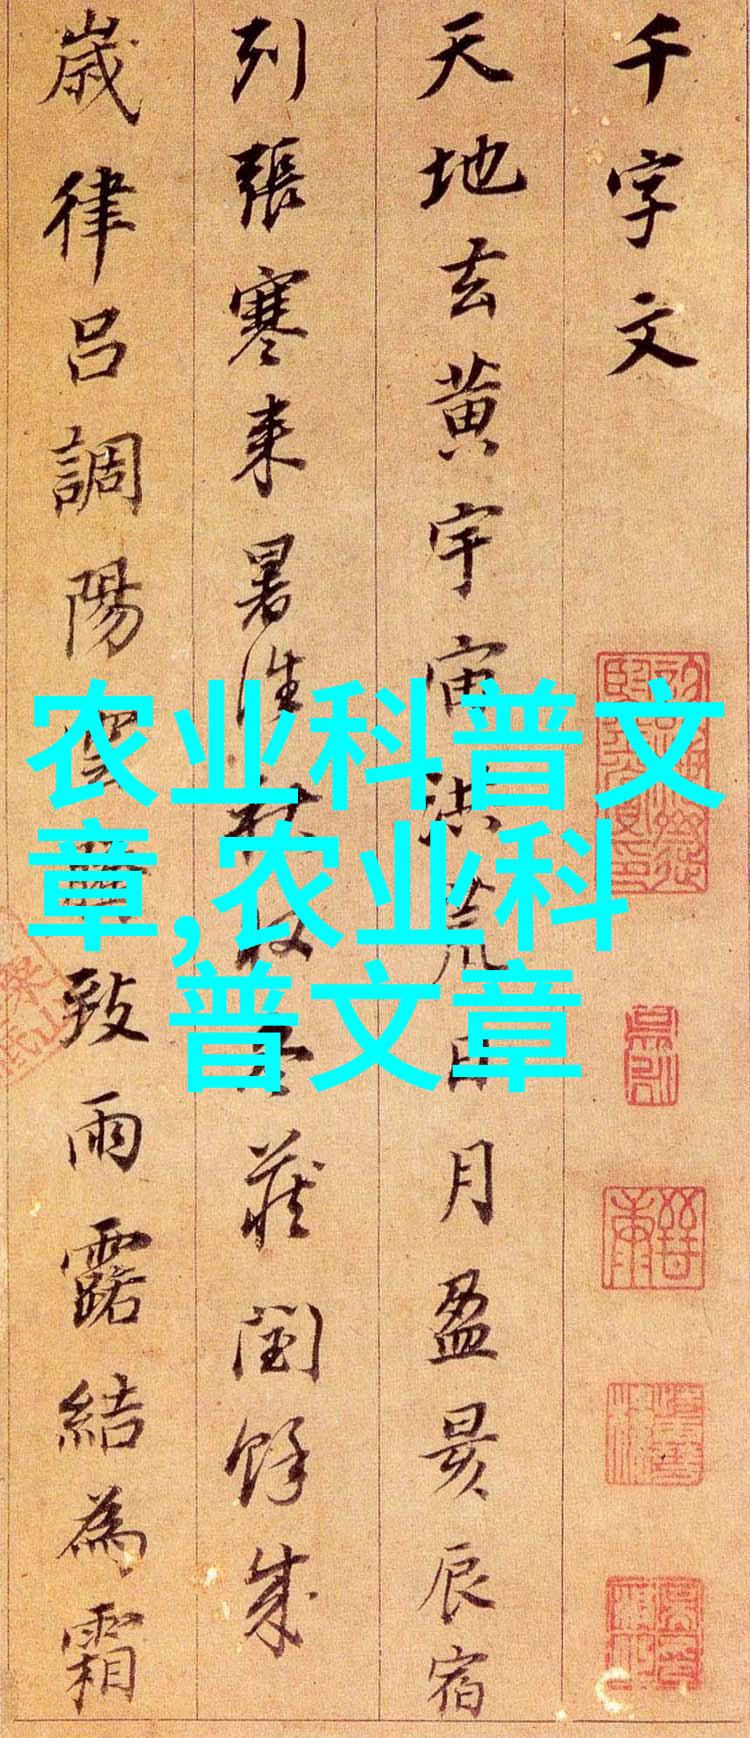 千字文
天地玄黄宇宙洪荒日月盈昃辰宿
列張寒来暑往秋収冬蔵閏餘成
歳律呂調陽雲騰致雨露結為霜
农业科普文
章,农业科
普文章